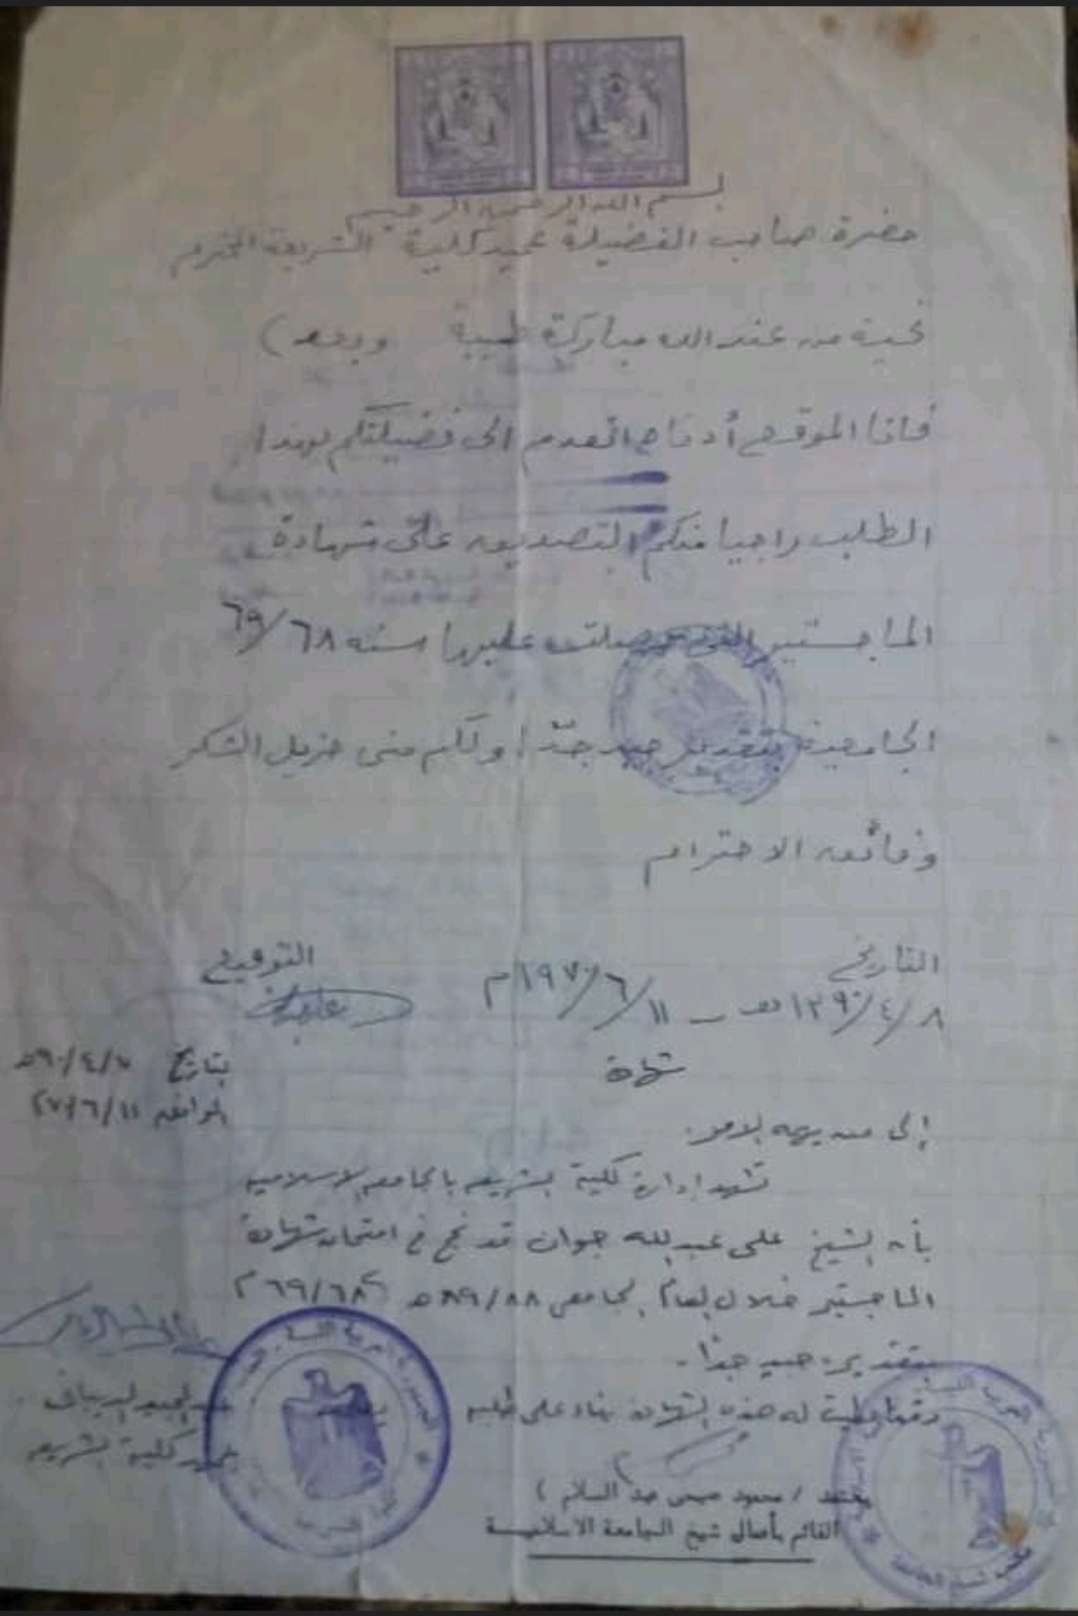 بسم الله الرحمن الرحيم
حضرة صاحب الفضيلة عميد كلية الشريعة المحترم
تحية من عند الله مباركة طيبة وبعد)
فانا الموقع أدناه اتقدم الى فضيلتكم بهذا
الطلب راجيا منكم التصديق على شهادة
الماجستير التى حصلت عليها سنه ٦٩/٦٨
الجامعية بتقدير جيد جدّا ولكم منى جزيل الشكر
وفائق الاحترام
التاريخ
التوقيع
٨/٤/١٣٩٠ هـ - ١١/٦/١٩٧٠ م
شهادة
بتاريخ
الموافق
إلى من يهمه الأمر.
تشهد إدارة كلية الشريعة بالجامعة الإسلامية
بأن الشيخ على عبد الله جوان قد نجح في امتحان شهادة
الماجستير خلال العام الجامعى ٨٩/٨٨ هـ ٦٩/٦٨ م
بتقدير: جيد جدًا.
وقد أعطيت له هذه الشهادة بناء على طلبه
عميد كلية الشريعة
يعتمد / محمود صبحى عبد السلام )
القائم بأعمال شيخ الجامعة الاسلامية